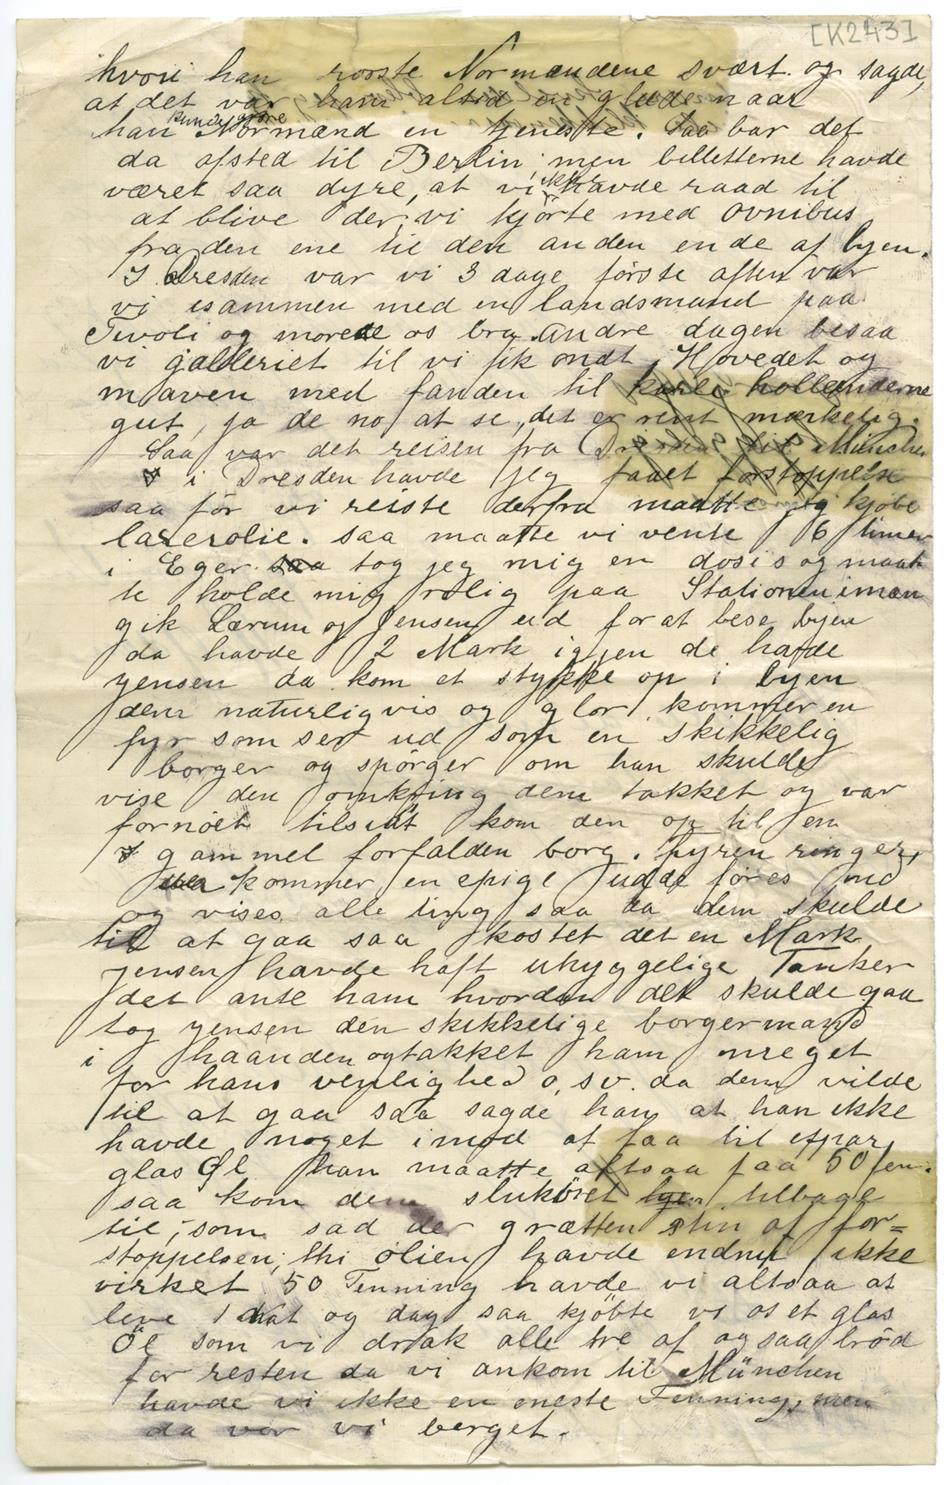 [K243]
hvori han roste Normændene svært og sagde,
at det var ham altid en glæde naar
han kunde gjøre Normænd en tjeneste. Saa bar det
da afsted til Berlin men billetterne havde
været saa dyre, at vi ikke havde raad til
at blive der, vi kjörte med ovnibus
fra den ene til den anden ende af byen.
I Dresden var vi 3 dage förste aften var
vi isammen med en landsmand paa
Tivoli og morede os bra. andre dagen besaa
vi galleriet til vi fik ondt i Hovedet og
maven med fanden til hollænderne
gut, ja de no at se, det er rent mærkelig.
Saa var det reisen fra Dresden til München
i Dresden havde jeg faaet forstoppelse
saa för vi reiste derfra maatte jeg kjøbe
laxerolie. saa maatte vi vente 6 timer
i Eger saa tog jeg mig en dosis og maat
te holde mig rolig paa Stationen imen
gik Lærum og Jensen ud for at bese byen
da havde 2 Mark igjen de hafde
jensen da kom et stykke op i byen
dem naturligvis og glor, kommer en
fyr som ser ud som en skikkelig
borger og spörger om han skulde
vise den omkring dem takket og var
fornöiet tilsidst kom den op til en
gammel forfalden borg. fyren ringer,
kommer en epige udde föres ind
og vises alle ting saa da dem skulde
til at gaa saa kostet det en Mark,
jensen havde haft uhyggelige Tanker
det ante ham hvordan det skulde gaa
tog jensen den skikkelige borgermand
i haanden og takket ham meget
for hans venlighed o, sv. da dem vilde
til at gaa saa sagde han at han ikke
havde noget imod at faa til etpar
glas Øl han maatte altsaa faa 50 fen.
saa kom dem slukøret tilbage
til, som sad der grætten af for=
stoppelsen, thi olien havde endnu ikke
virket 50 Fenning havde vi altsaa at
leve 1 Nat og dag saa kjöbte vi os et glas
Öl som vi drak alle tre af og saa bröd
for resten da vi ankom til München
havde vi ikke en eneste Fenning, men
da var vi berget.